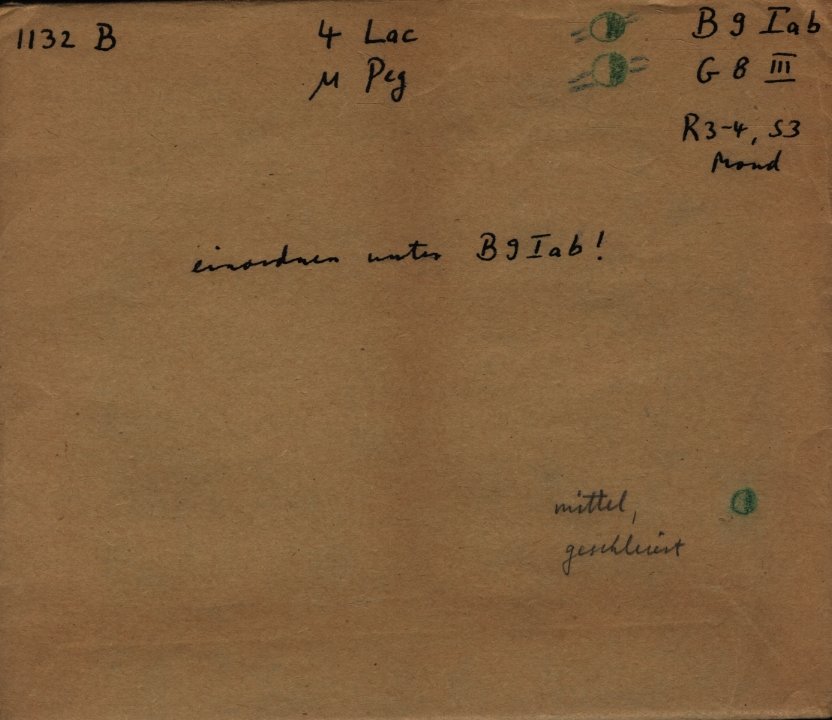 1132 B 4 Lac B 9 Iab
μ Peg G 8 III
R3-4, S3
Mond
einordnen unter B9Iab!
mittel,
geschleiert